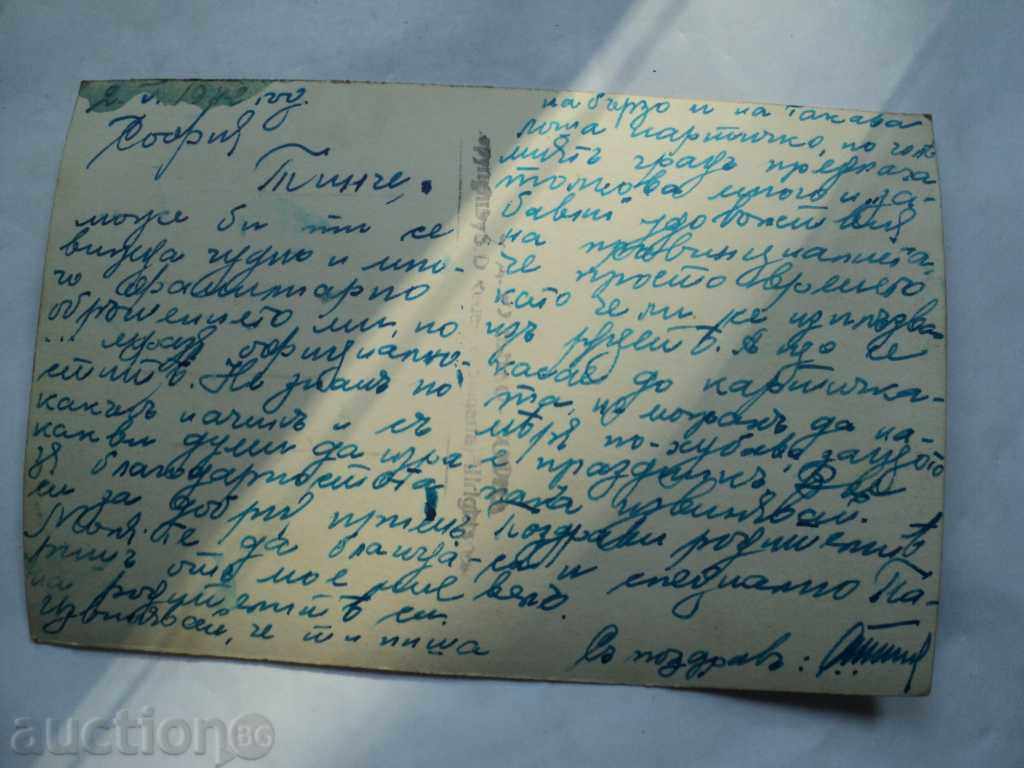 2. 1942 год.
София
Тинче,
може би ти се
вижда чудно и мно-
го фамилиарно
обръщението ми, но
... мразя официално-
ститѣ. Не зная по
какъвъ начинъ и съ
какви думи да изра-
зя благодарностьта
си за добрия приемъ.
Моля те да благода-
ришъ отъ мое име
на родителитѣ си.
Извинявай, че ти пиша
на бързо и на такава
лоша картичка, но голѣ-
миятъ градъ предлага
толкова много и „за-
бавни" удоволствия
на провинциалиста,
че просто времето
като че ли се изплъзва
изъ рѫцетѣ. А що се
касае до картичка-
та, не можахъ да на-
мѣря по-хубава, защото
е праздникъ,
та извинявай.
Поздрави родителитѣ
си и специално Па-
велъ.
Съ поздравъ:
auction BG